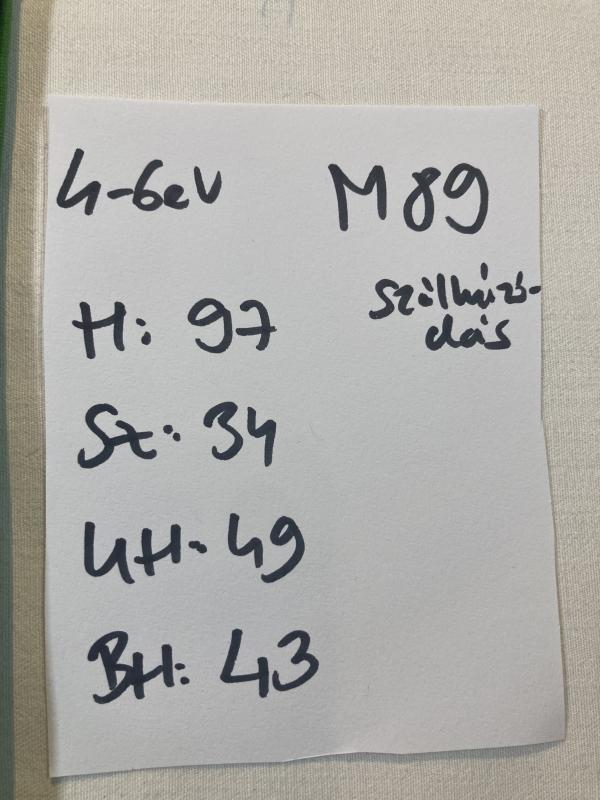 4-6 eV M 89
Szálhúzó-
dás
H: 97
Sz: 34
UH: 49
BH: 43